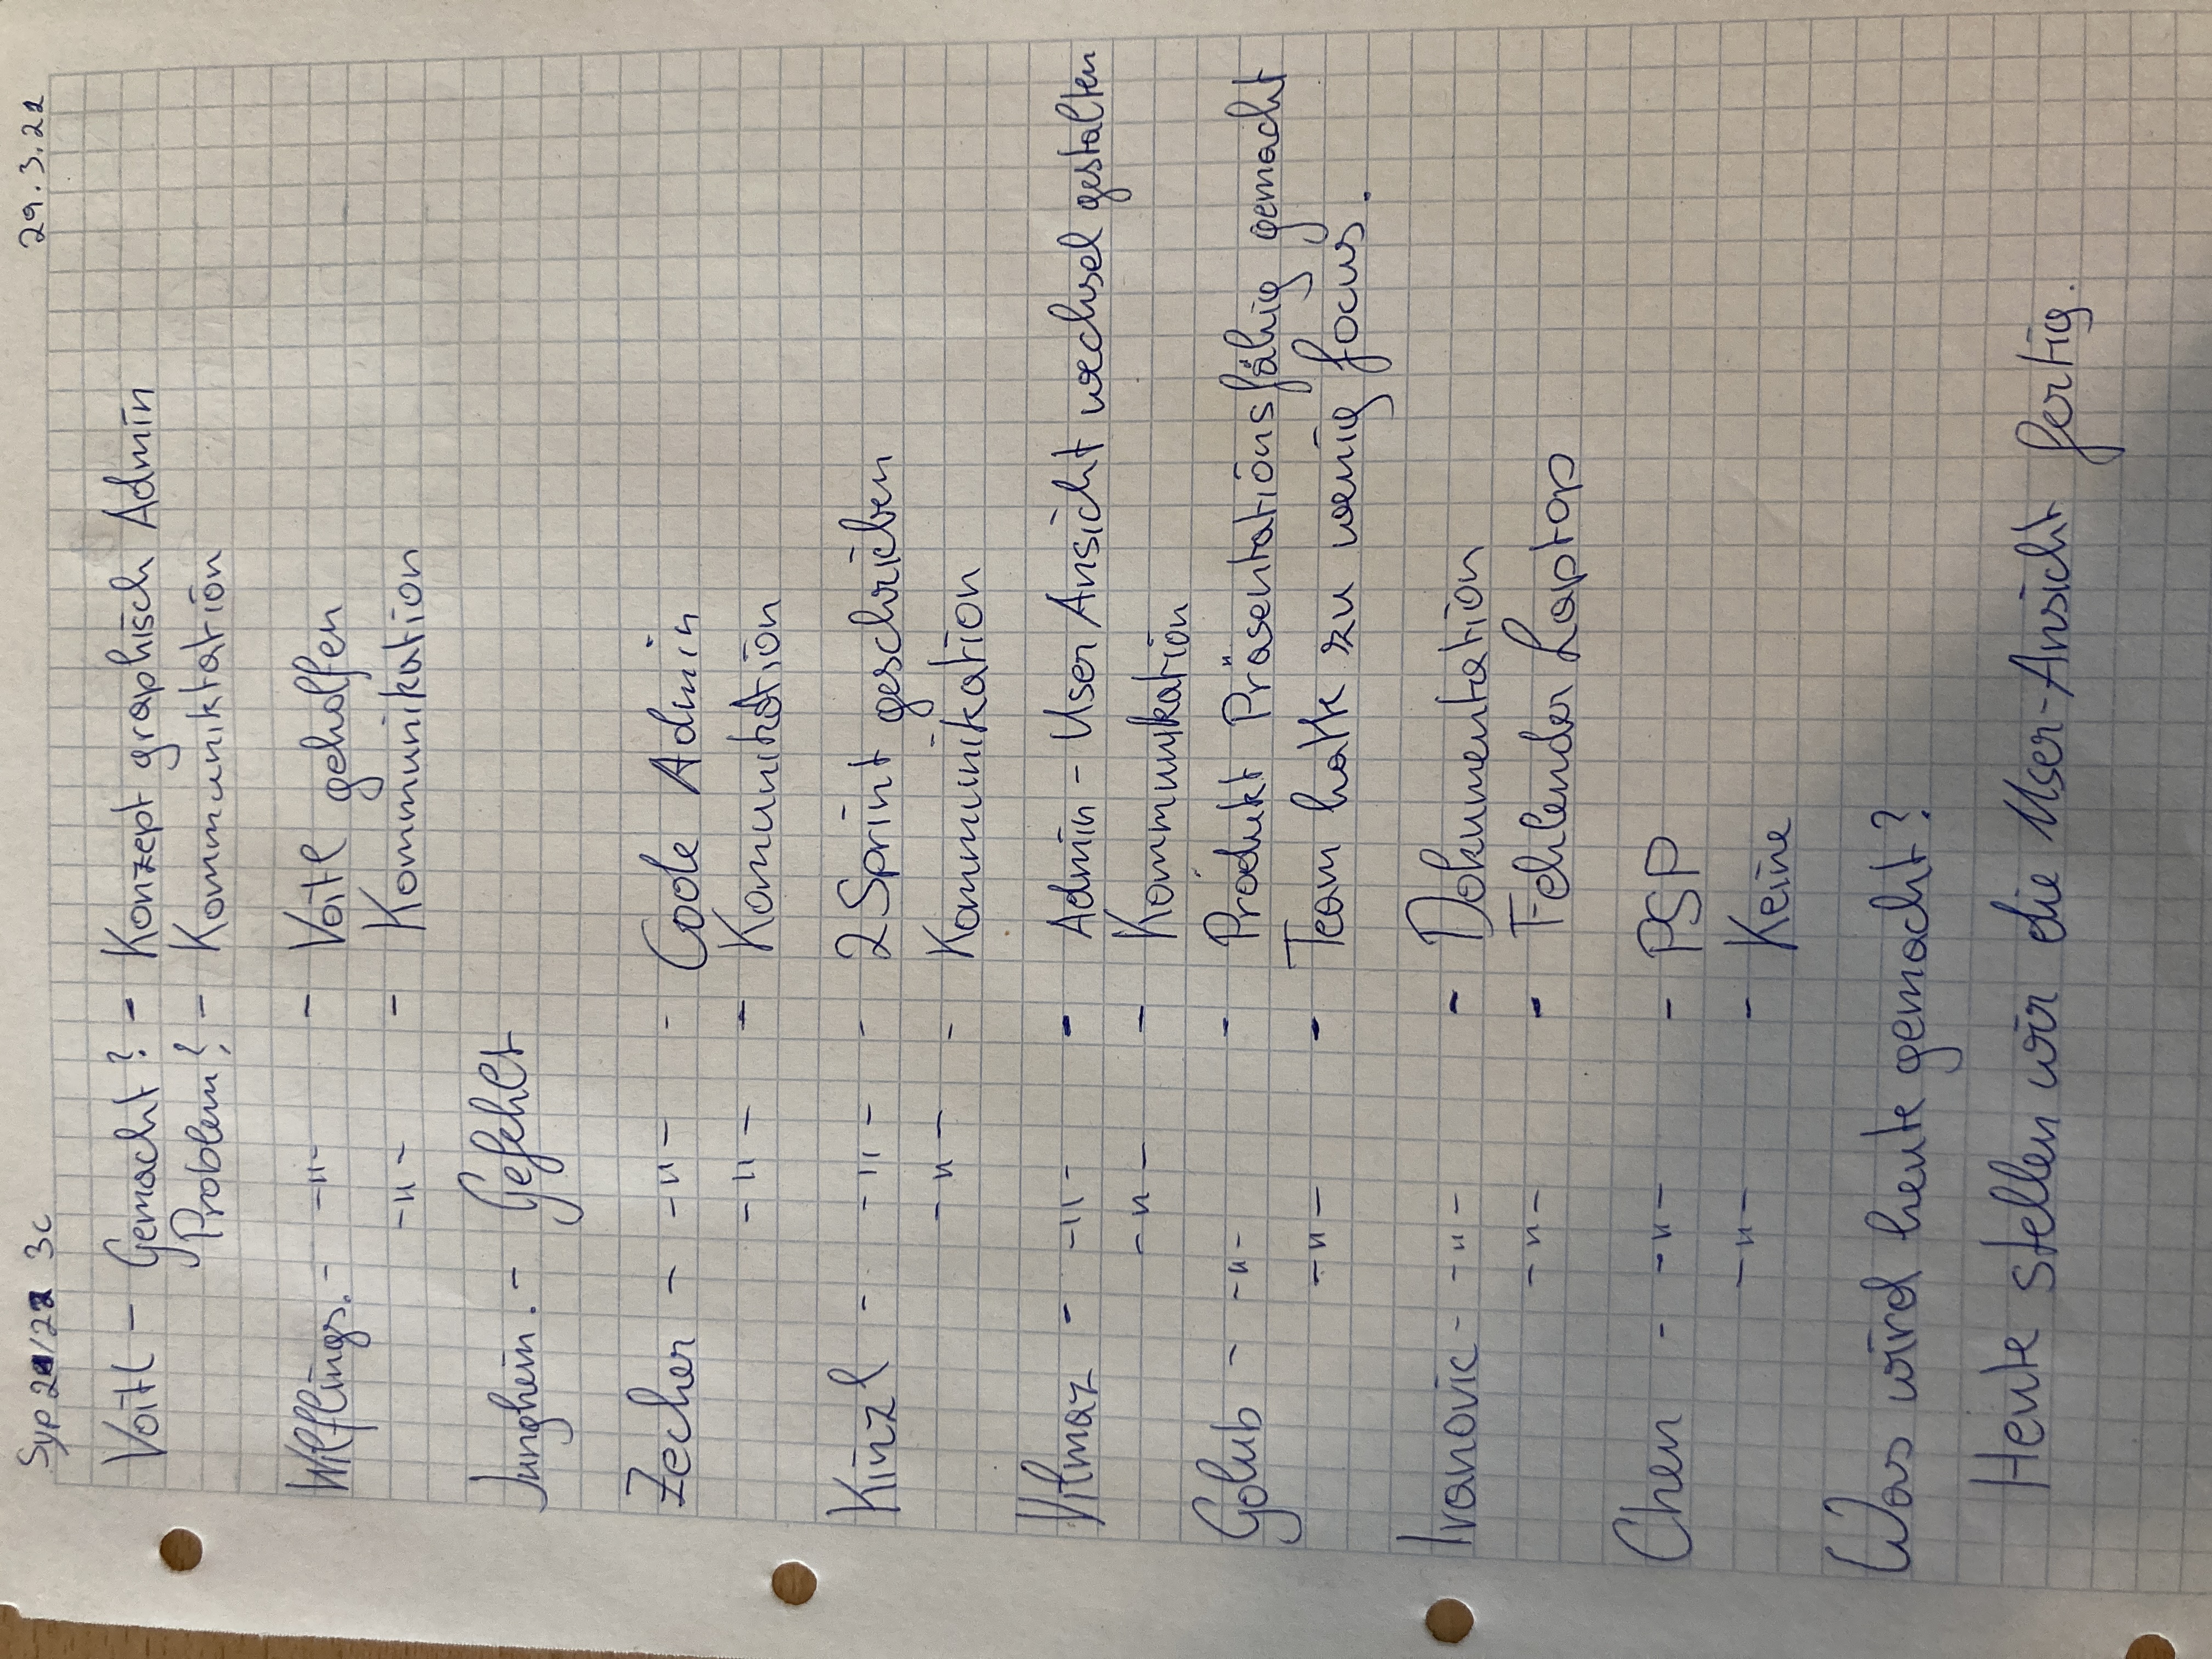 Syp 21/22 3c 29.3.22
Voitl - Gemacht? - Konzept graphisch Admin
Problem? - Kommuniktation
Wilflings. - -"- - Voitl geholfen
-"- - Kommunikation
Junghein. - Gefehlt
Zecher - -"- - Code Admin
-"- - Komunikation
Kinzl - -"- - 2 Sprint geschrieben
-"- - Kommunikation
Yilmaz - -"- - Admin - User Ansicht wechsel gestalten
-"- - Kommunikation
Golub - -"- - Produkt Präsentationsfähig gemacht
-"- - Team hatte zu wenig focus.
Ivanovic - -"- - Dokumentation
-"- - Fehlender Laptop
Chen - -"- - PSP
-"- - Keine
Was wird heute gemacht?
Heute stellen wir die User-Ansicht fertig.